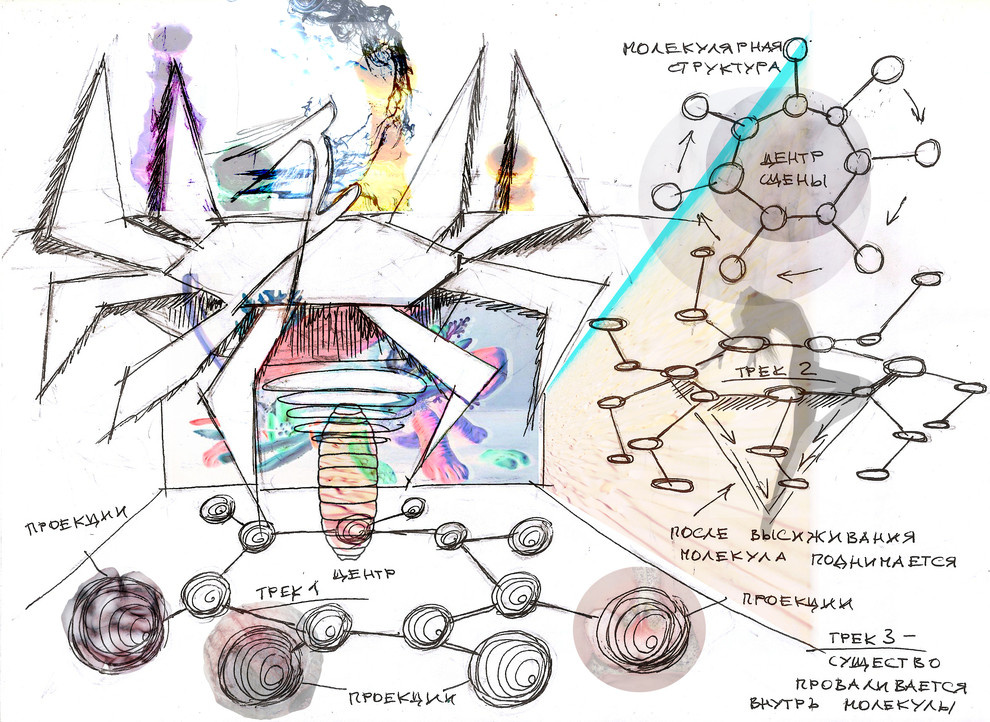 МОЛЕКУЛЯРНАЯ
СТРУКТУРА
ЦЕНТР
СЦЕНЫ
ТРЕК 2
ПРОЕКЦИИ
ПОСЛЕ ВЫСИЖИВАНИЯ
МОЛЕКУЛА ПОДНИМАЕТСЯ
ЦЕНТР
ТРЕК 1
ПРОЕКЦИИ
ПРОЕКЦИИ
ТРЕК 3 –
СУЩЕСТВО
ПРОВАЛИВАЕТСЯ
ВНУТРЬ МОЛЕКУЛЫ